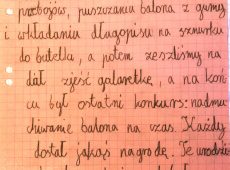 przebojów, puszczania balona z gumy
i wkładania długopisu na sznurku
do butelki, a potem zeszliśmy na
dół zjeść galaretkę, a na koń
cu był ostatni konkurs: nadmu
chiwanie balona na czas. Każdy
dostał jakąś nagrodę. Te urodzi